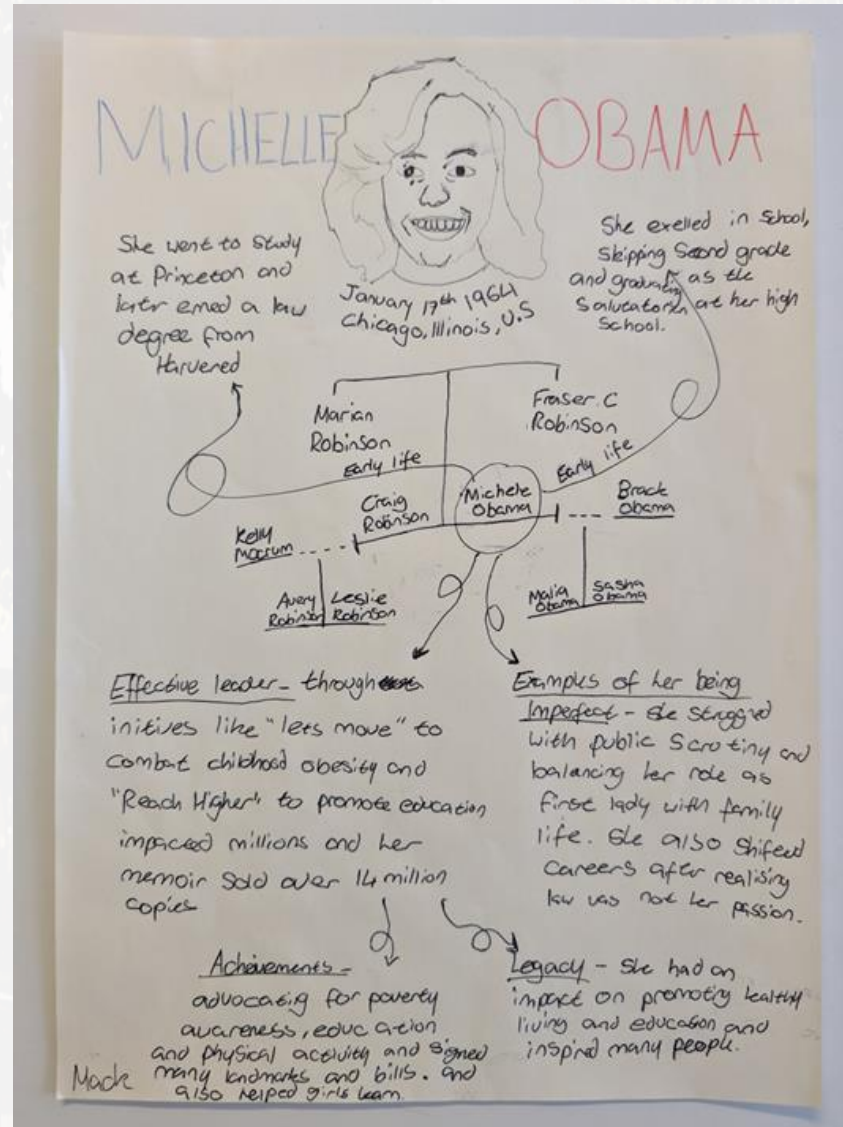 MICHELLE OBAMA
She went to study
at Princeton and
later erned a law
degree from
Harvered
January 17th 1964
Chicago, Illinois, U.S
She exelled in School,
skipping Second grade
and graduating as the
Salutatorian at her high
School.
Marian
Robinson
Fraser. C
Robinson
Early life
Early life
Craig
Robinson
Michele
Obama
Brack
Obama
Kelly
Avery
Robinson
Leslie
Robinson
Malia
Obama
Sasha
Obama
Effective leader - through
initives like "lets move" to
combat childhood obesity and
"Reach Higher" to promote education
impacted millions and her
memoir Sold over 14 million
copies
Examples of her being
Imperfect - she struggled
with public Scrutiny and
balancing her role as
first lady with family
life. She also Shifted
careers after realising
law was not her passion.
Achievements -
advocating for poverty
awareness, education
and physical activity and signed
many landmarks and bills. and
also helped girls learn.
Legacy - She had an
impact on promoting healthy
living and education and
inspired many people.
Mack